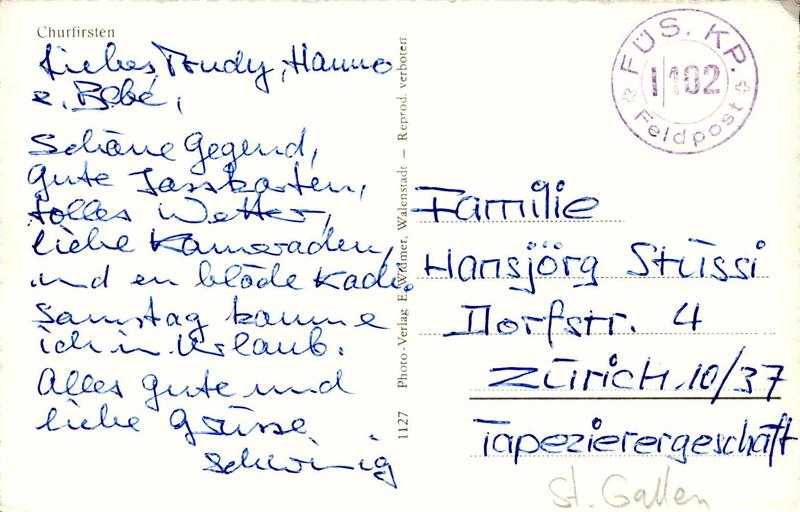 Churfirsten
Liebes Trudy, Hanno
e. Bébé,
Schöne Gegend,
gute Jasskarten,
tolles Wetter,
liebe Kameraden,
und en blöde Kadi.
Samstag komme
ich in Urlaub.
Alles gute und
liebe Grüsse
1127 Photo-Verlag E. Widmer, Walenstadt – Reprod. verboten
FÜS. KP.
I/102
Feldpost
Familie
Hansjörg Stüssi
Dorfstr. 4
Zürich 10/37
Tapezierergeschäft
St. Gallen